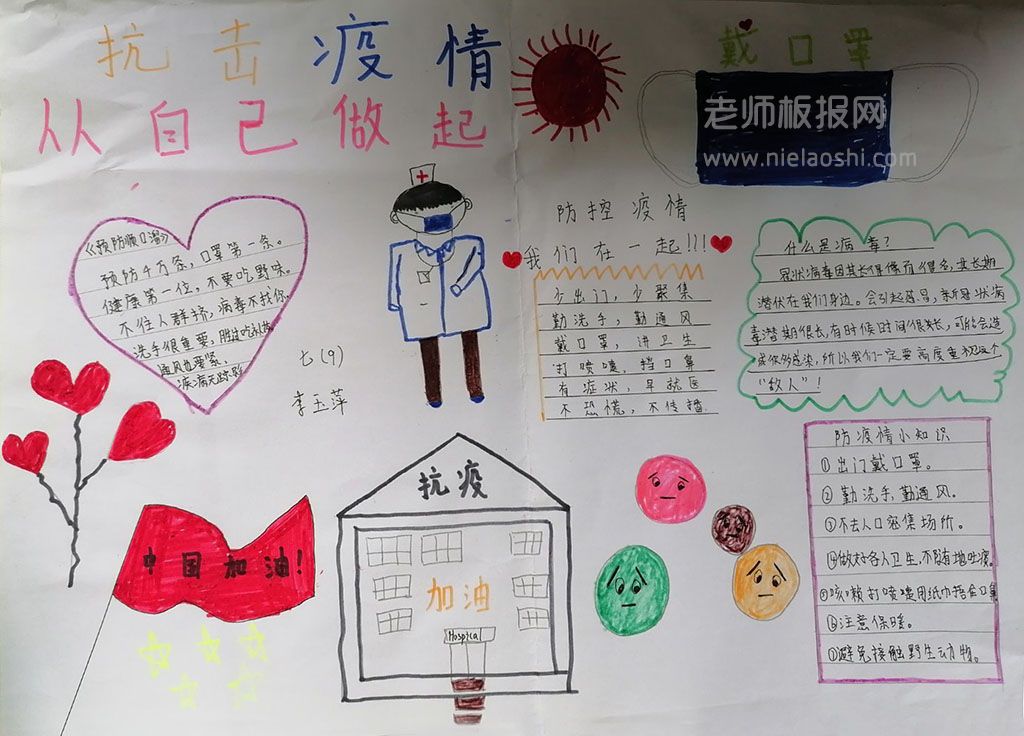 抗击疫情
从自己做起
戴口罩
老师板报网
www.nielaoshi.com
《预防顺口溜》
预防千万条，口罩第一条。
健康第一位，不要吃野味。
不住人群挤，病毒不找你，
洗手很重要，胜过吃补药
通风也要紧，
疾病无踪影
七(9)
李玉萍
防控疫情
我们在一起!!!
少出门，少聚集
勤洗手，勤通风
戴口罩，讲卫生
打喷嚏，挡口鼻
有症状，早就医
不恐慌，不传播.
什么是病毒？
冠状病毒因其长得像而得名，其长期
潜伏在我们身边。会引起
毒潜期很长，有时候时间很长，可能会造
感染，所以我们一定要高度重视这个
“敌人”！
防疫情小知识
①出门戴口罩。
②勤洗手，勤通风。
③不去人口密集场所。
④做好各人卫生，不随地吐痰
⑤咳嗽打喷嚏用纸巾捂住口鼻
⑥注意保暖。
⑦避免接触野生动物。
中国加油！
抗疫
加油
Hospical